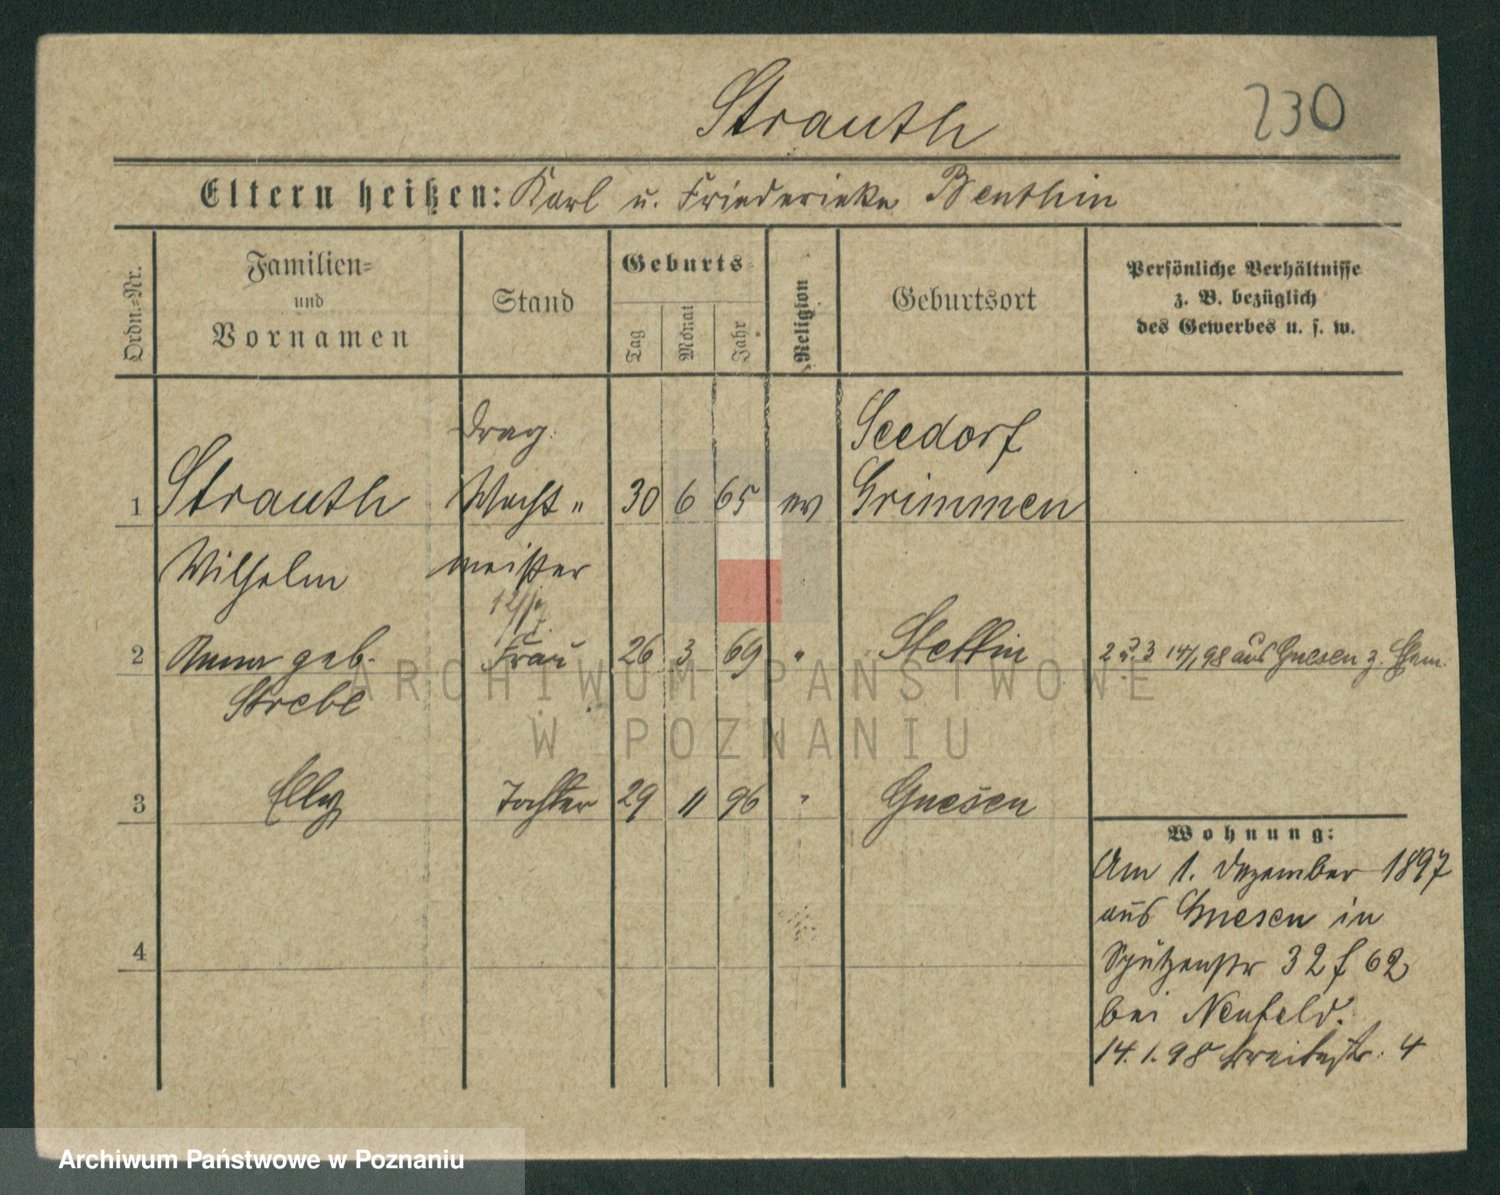 Strauth
230
Eltern heißen: Karl u. Friederieke Benthin
Ordn.-Nr.
Familien-
und
Vornamen
Stand
Geburts-
Tag
Monat
Jahr
Religion
Geburtsort
Persönliche Verhältnisse
z. B. bezüglich
des Gewerbes u. s. w.
Drag.
Seedorf
1 Strauth Wacht- 30 6 65 ev Grimmen
Wilhelm meister
2 Anna geb. Frau 26 3 69 " Stettin 2 u. 3 14/1 98 aus Gnesen z. Ehem.
Strebe
3 Elly Tochter 29 11 96 " Gnesen
Wohnung:
Am 1. Dezember 1897
aus Gnesen in
32 f 62
bei Neufeld.
14.1.98 Breitestr. 4
4
ARCHIWUM PAŃSTWOWE
W POZNANIU
Archiwum Państwowe w Poznaniu